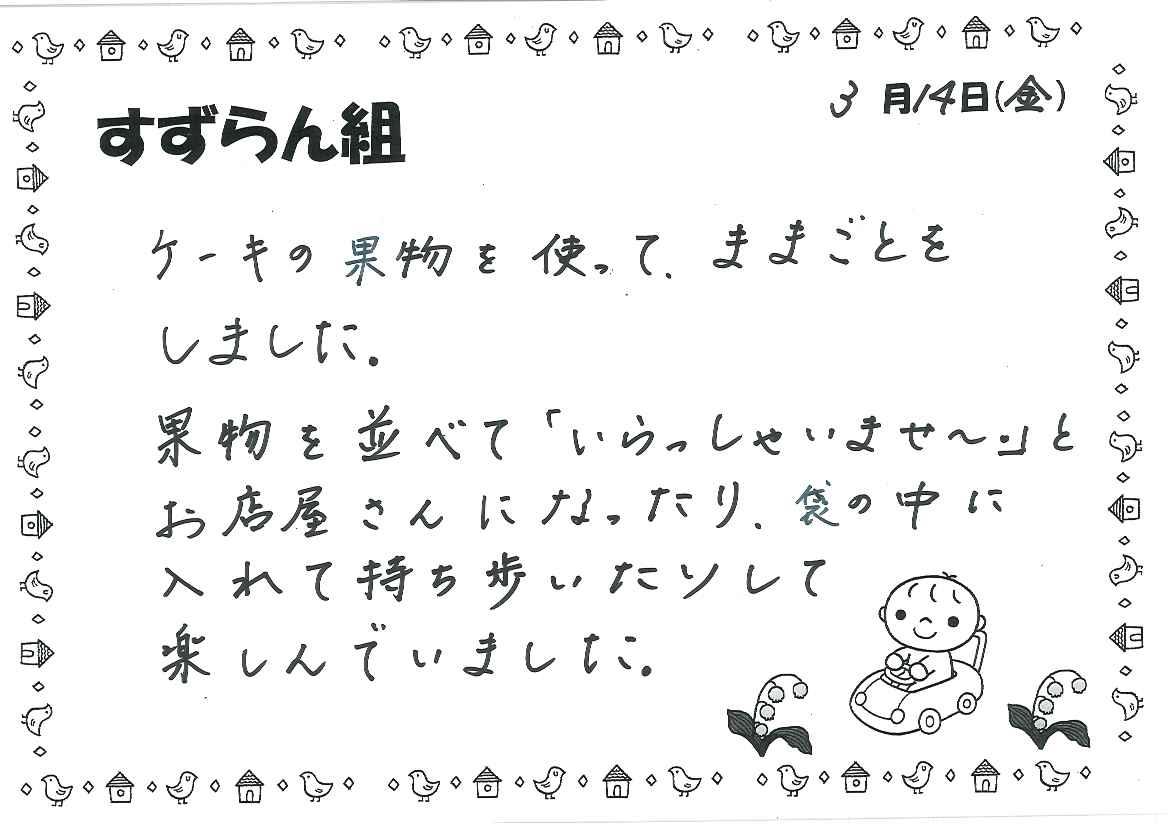 3月14日(金)
すずらん組
ケーキの果物を使って、ままごとを
しました。
果物を並べて「いらっしゃいませ〜。」と
お店屋さんになったり、袋の中に
入れて持ち歩いたりして
楽しんでいました。